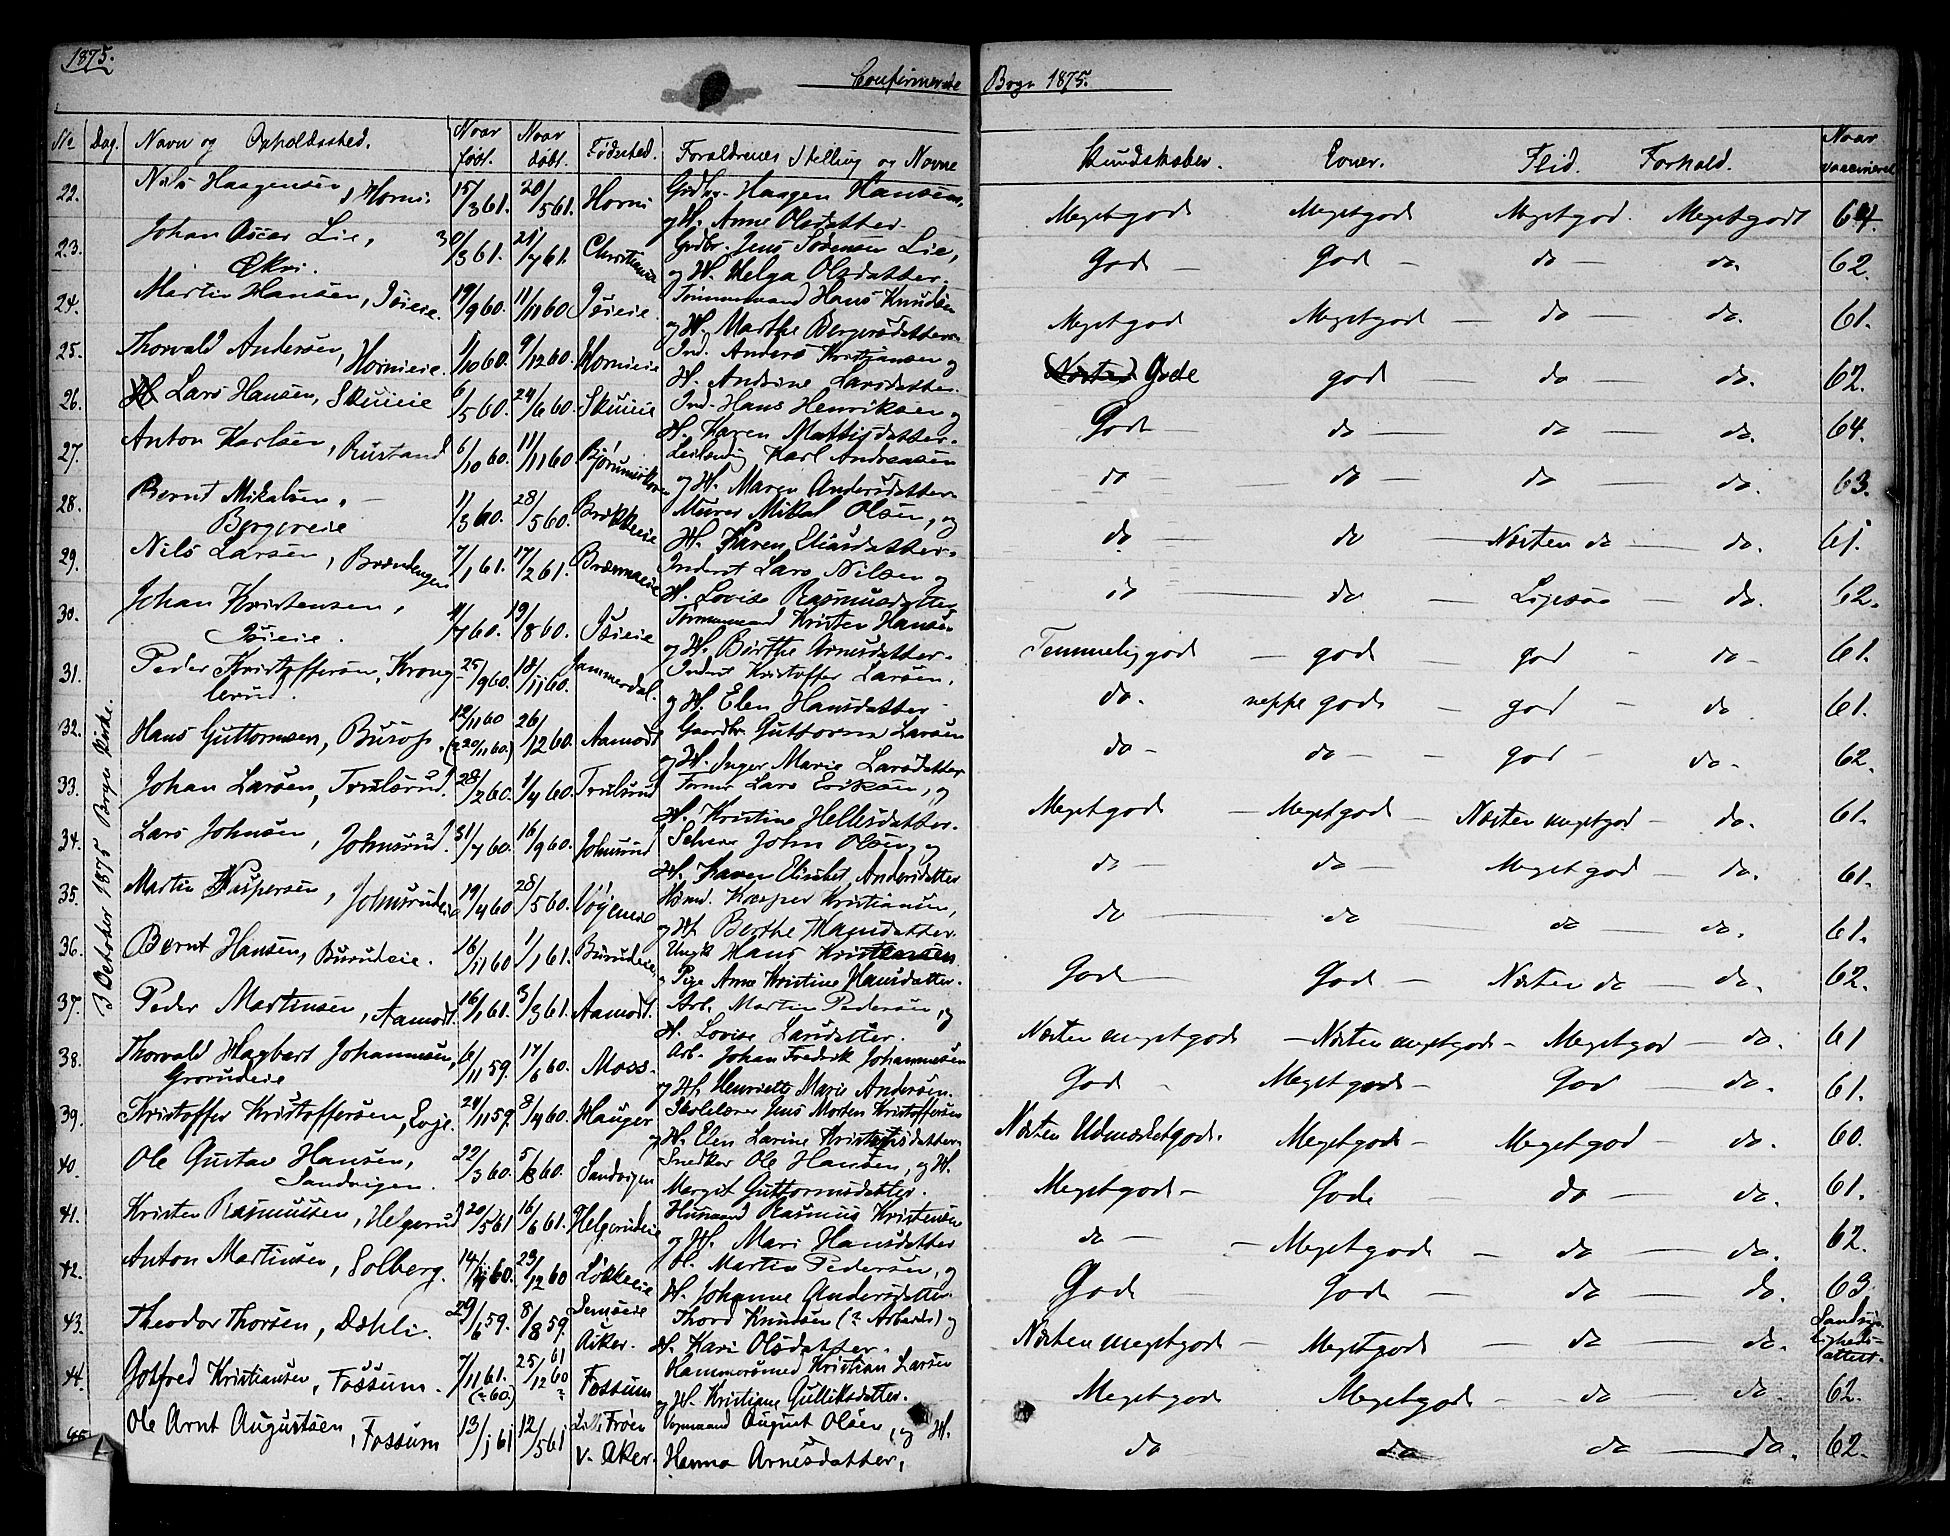 1875.
Confirmerede Børn 1875.
No. Dag. Navn og Opholdssted. Naar født. Naar døbt. Fødested. Forældrenes Stilling og Navne Kundskaber. Evner. Flid. Forhold. Naar vaccineret
3 October 1875 Bryn Kirke.
22. Nils Haagensen, Horni. 15/3 61. 20/5 61. Horni Grdbr. Haagen Hansen, Megetgod Megetgod Megetgod. Megetgodt 64.
og H. Anne Olsdatter.
23. Johan Oscar Lie, 30/3 61. 21/7 61. Christiania Grdbr. Jens Sørensen Lie, God — God — do — do. 62.
Økri. og H. Helga Olsdatter.
24. Martin Hansen, Isieie. 19/9 60. 11/11 60. Isieie. Tømmermand Hans Knudsen Megetgod Megetgod — do — do. 61.
og H. Marthe Bergersdatter.
25. Thorvald Andersen, Hornieie. 1/10 60. 9/12 60. Hornieie Ind. Anders Kristiansen og Gode god — do — do. 62.
H. Andrine Larsdatter.
26. Lars Hansen, Skuieie 6/5 60. 24/6 60. Skuieie Ind. Hans Henriksen og God — do — do — do. 64.
H. Karen Mattisdatter.
27. Anton Karlsen, Rustand 6/10 60. 11/11 60 Leilending Karl Andreasen do — do — do — do. 63.
og H. Maren Andersdatter.
28. Bernt Mikalsen, 11/3 60. 28/5 60. Brikkeie Murer Mikal Olsen, og do — do — Næsten do — do. 61.
Bergereie H. Karen Eliasdatter.
29. Nils Larsen, Brændengen 7/1 61. 17/2 61. Inderst Lars Nilsen og do — do — Ligesaa — do. 62.
H. Lovise Rasmusdatter
30. Johan Kristensen, 11/7 60. 19/8 60. Isieie Tømmermand Kristen Hansen Temmelig god — god — god - do - 61.
Isieie. og H. Birthe Arnesdatter.
31. Peder Kristoffersen, Krong- 25/9 60. 18/11 60. Sammerdal. Inderst Kristoffer Larsen, do. neppe gode — god — do 61.
lerud. og H. Elen Hansdatter
32. Hans Guttormsen, Busop. 12/11 60 (? 20/11 60.) 26/12 60. Aamodt Gaardbr. Guttorm Larsen do - do - god — do - 62.
og H. Inger Marie Larsdatter
33. Johan Larsen, Trulsrud. 28/2 60. 1/4 60. Trulsrud Former Lars Eriksen, og Megetgod — Megetgod — Næsten megetgod - do. 61.
H. Kristine Hellesdatter.
34. Lars Johnsen, Johnsrud. 31/7 60. 16/9 60. Johnsrud Selveier John Olsen, og do — do — Megetgod — do. 61.
H. Karen Elisabet Andersdatter
35. Martin Kaspersen, Johnsrudeie 19/4 60 28/5 60. Vøyeneie Husmd. Kasper Kristiansen, do do do — do. 61.
og H. Berthe Hansdatter.
36. Bernt Hansen, Burudeie. 16/11 60 1/1 61. Burudeie, Ungk. Hans Kristensen God — God — Næsten do — do. 62.
og Pige Anne Kristine Hansdatter.
37. Peder Martinsen, Aamodt. 16/1 61. 3/3 61. Aamodt. Arb. Martin Pedersen, og Næsten megetgode — Næsten megetgode - Megetgod — do. 61
H. Lovise Larsdatter.
38. Thorvald Hagbart Johannesen, 6/11 59. 17/6 60. Moss. Arb. Johan Fredrik Johannesen God - Megetgode - God — do. 61.
Grorudeie og H. Henriette Marie Andersen.
39. Kristoffer Kristoffersen, Evje. 24/11 59. 8/4 60. Hauger Skolelærer Jens Morten Kristoffersen Næsten Udmærketgode. Megetgode - Megetgod — do. 60.
og H. Elen Larine Kristensdatter.
40. Ole Gustav Hansen, 22/3 60. 5/8 60. Sandvigen Snedker Ole Hansen, og H. Megetgode - Gode — do — do. 61.
Sandvigen. Margit Guttormsdatter.
41. Kristen Rasmussen, Helgerud 20/5 61 16/6 61. Helgerudeie Husmand Rasmus Kristensen do — — Megetgode — do — do. 62.
og H. Mari Hansdatter
42. Anton Martinsen, Solberg. 14/11 60. 23/12 60 Løkkeeie H. Martin Pedersen, og Gode Gode — do — do. 63
H. Johanne Andersdatter
43. Theodor Thorsen, Dæhli. 29/6 59. 8/8 59. Semseie Thord Knudsen (? Arbeider) og Næsten megetgode — Megetgode — do — do. Sandsyn-
Asker. H. Kari Olsdatter. ligheds-
attest.
44. Gotfred Kristiansen, Fossum. 7/11 61. (? 60.) 25/12 61 60 ? Fossum Hammersmed Kristian Larsen Megetgode Megetgode — do — do. 62.
og H. Kristiane Gulliksdatter.
45 Ole Arnt Augustsen, Fossum 13/1 61 12/5 61 Lille Frøen Vognmand August Olsen, og H. do do do — do. 62.
V. Aker. Hanna Arnesdatter,